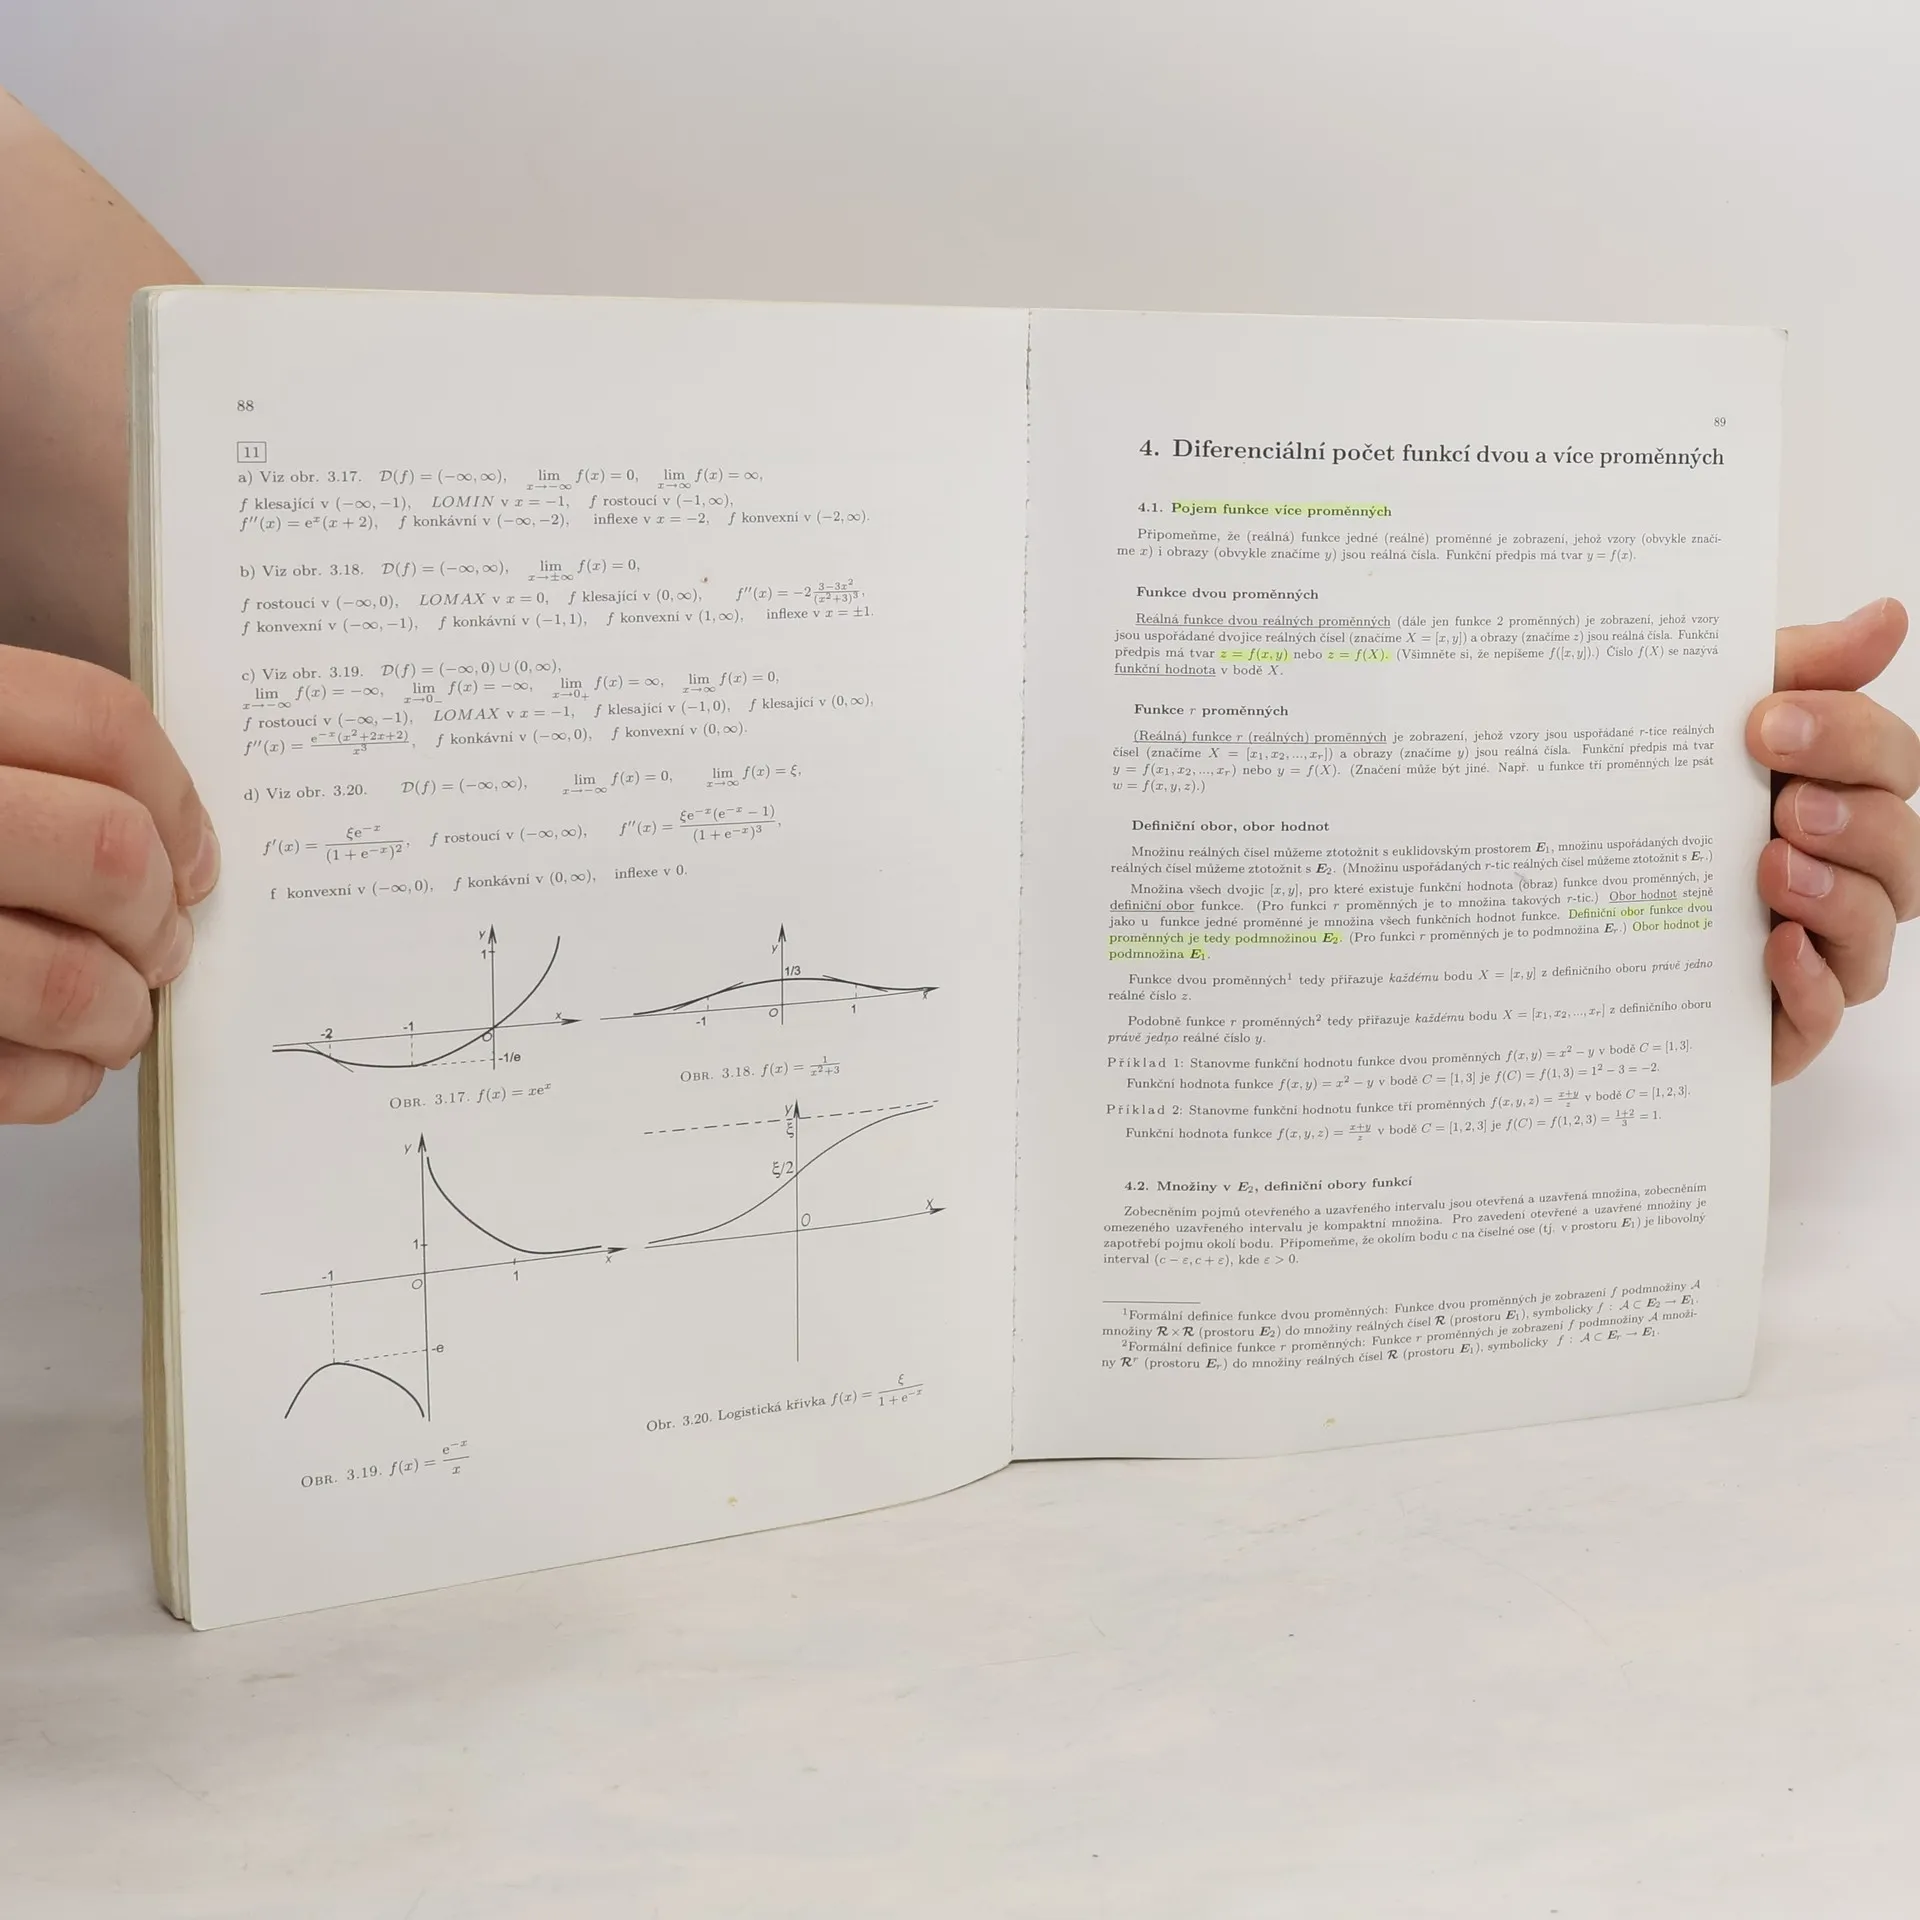 88
11
a) Viz obr. 3.17. D(f) = (−∞, ∞), lim x→−∞ f(x) = 0, lim x→∞ f(x) = ∞,
f klesající v (−∞, −1), LOMIN v x = −1, f rostoucí v (−1, ∞),
f″(x) = eˣ(x + 2), f konkávní v (−∞, −2), inflexe v x = −2, f konvexní v (−2, ∞).
b) Viz obr. 3.18. D(f) = (−∞, ∞), lim x→±∞ f(x) = 0,
f rostoucí v (−∞, 0), LOMAX v x = 0, f klesající v (0, ∞), f″(x) = −2 (3−3x²)/(x²+3)³,
f konvexní v (−∞, −1), f konkávní v (−1, 1), f konvexní v (1, ∞), inflexe v x = ±1.
c) Viz obr. 3.19. D(f) = (−∞, 0) ∪ (0, ∞),
lim x→−∞ f(x) = −∞, lim x→0₋ f(x) = −∞, lim x→0₊ f(x) = ∞, lim x→∞ f(x) = 0,
f rostoucí v (−∞, −1), LOMAX v x = −1, f klesající v (−1, 0), f klesající v (0, ∞),
f″(x) = e⁻ˣ(x²+2x+2)/x³, f konkávní v (−∞, 0), f konvexní v (0, ∞).
d) Viz obr. 3.20. D(f) = (−∞, ∞), lim x→−∞ f(x) = 0, lim x→∞ f(x) = ξ,
f′(x) = ξe⁻ˣ/(1 + e⁻ˣ)², f rostoucí v (−∞, ∞), f″(x) = ξe⁻ˣ(e⁻ˣ − 1)/(1 + e⁻ˣ)³,
f konvexní v (−∞, 0), f konkávní v (0, ∞), inflexe v 0.
y 1 -2 -1 O x -1/e
Obr. 3.17. f(x) = xeˣ
y 1/3 -1 O 1 x
Obr. 3.18. f(x) = 1/(x²+3)
y 1 -1 O 1 x -e
Obr. 3.19. f(x) = e⁻ˣ/x
y ξ ξ/2 O X
Obr. 3.20. Logistická křivka f(x) = ξ/(1 + e⁻ˣ)
89
4. Diferenciální počet funkcí dvou a více proměnných
4.1. Pojem funkce více proměnných
Připomeňme, že (reálná) funkce jedné (reálné) proměnné je zobrazení, jehož vzory (obvykle značí-
me x) i obrazy (obvykle značíme y) jsou reálná čísla. Funkční předpis má tvar y = f(x).
Funkce dvou proměnných
Reálná funkce dvou reálných proměnných (dále jen funkce 2 proměnných) je zobrazení, jehož vzory
jsou uspořádané dvojice reálných čísel (značíme X = [x, y]) a obrazy (značíme z) jsou reálná čísla. Funkční
předpis má tvar z = f(x, y) nebo z = f(X). (Všimněte si, že nepíšeme f([x, y]).) Číslo f(X) se nazývá
funkční hodnota v bodě X.
Funkce r proměnných
(Reálná) funkce r (reálných) proměnných je zobrazení, jehož vzory jsou uspořádané r-tice reálných
čísel (značíme X = [x₁, x₂, ..., xᵣ]) a obrazy (značíme y) jsou reálná čísla. Funkční předpis má tvar
y = f(x₁, x₂, ..., xᵣ) nebo y = f(X). (Značení může být jiné. Např. u funkce tří proměnných lze psát
w = f(x, y, z).)
Definiční obor, obor hodnot
Množinu reálných čísel můžeme ztotožnit s euklidovským prostorem E₁, množinu uspořádaných dvojic
reálných čísel můžeme ztotožnit s E₂. (Množinu uspořádaných r-tic reálných čísel můžeme ztotožnit s Eᵣ.)
Množina všech dvojic [x, y], pro které existuje funkční hodnota (obraz) funkce dvou proměnných, je
definiční obor funkce. (Pro funkci r proměnných je to množina takových r-tic.) Obor hodnot stejně
jako u funkce jedné proměnné je množina všech funkčních hodnot funkce. Definiční obor funkce dvou
proměnných je tedy podmnožinou E₂. (Pro funkci r proměnných je to podmnožina Eᵣ.) Obor hodnot je
podmnožina E₁.
Funkce dvou proměnných¹ tedy přiřazuje každému bodu X = [x, y] z definičního oboru právě jedno
reálné číslo z.
Podobně funkce r proměnných² tedy přiřazuje každému bodu X = [x₁, x₂, ..., xᵣ] z definičního oboru
právě jedno reálné číslo y.
Příklad 1: Stanovme funkční hodnotu funkce dvou proměnných f(x, y) = x² − y v bodě C = [1, 3].
Funkční hodnota funkce f(x, y) = x² − y v bodě C = [1, 3] je f(C) = f(1, 3) = 1² − 3 = −2.
Příklad 2: Stanovme funkční hodnotu funkce tří proměnných f(x, y, z) = (x+y)/z v bodě C = [1, 2, 3].
Funkční hodnota funkce f(x, y, z) = (x+y)/z v bodě C = [1, 2, 3] je f(C) = f(1, 2, 3) = (1+2)/3 = 1.
4.2. Množiny v E₂, definiční obory funkcí
Zobecněním pojmů otevřeného a uzavřeného intervalu jsou otevřená a uzavřená množina, zobecněním
omezeného uzavřeného intervalu je kompaktní množina. Pro zavedení otevřené a uzavřené množiny je
zapotřebí pojmu okolí bodu. Připomeňme, že okolím bodu c na číselné ose (tj. v prostoru E₁) je libovolný
interval (c − ε, c + ε), kde ε > 0.
¹Formální definice funkce dvou proměnných: Funkce dvou proměnných je zobrazení f podmnožiny A
množiny R × R (prostoru E₂) do množiny reálných čísel R (prostoru E₁), symbolicky f : A ⊂ E₂ → E₁.
²Formální definice funkce r proměnných: Funkce r proměnných je zobrazení f podmnožiny A množi-
ny Rʳ (prostoru Eᵣ) do množiny reálných čísel R (prostoru E₁), symbolicky f : A ⊂ Eᵣ → E₁.